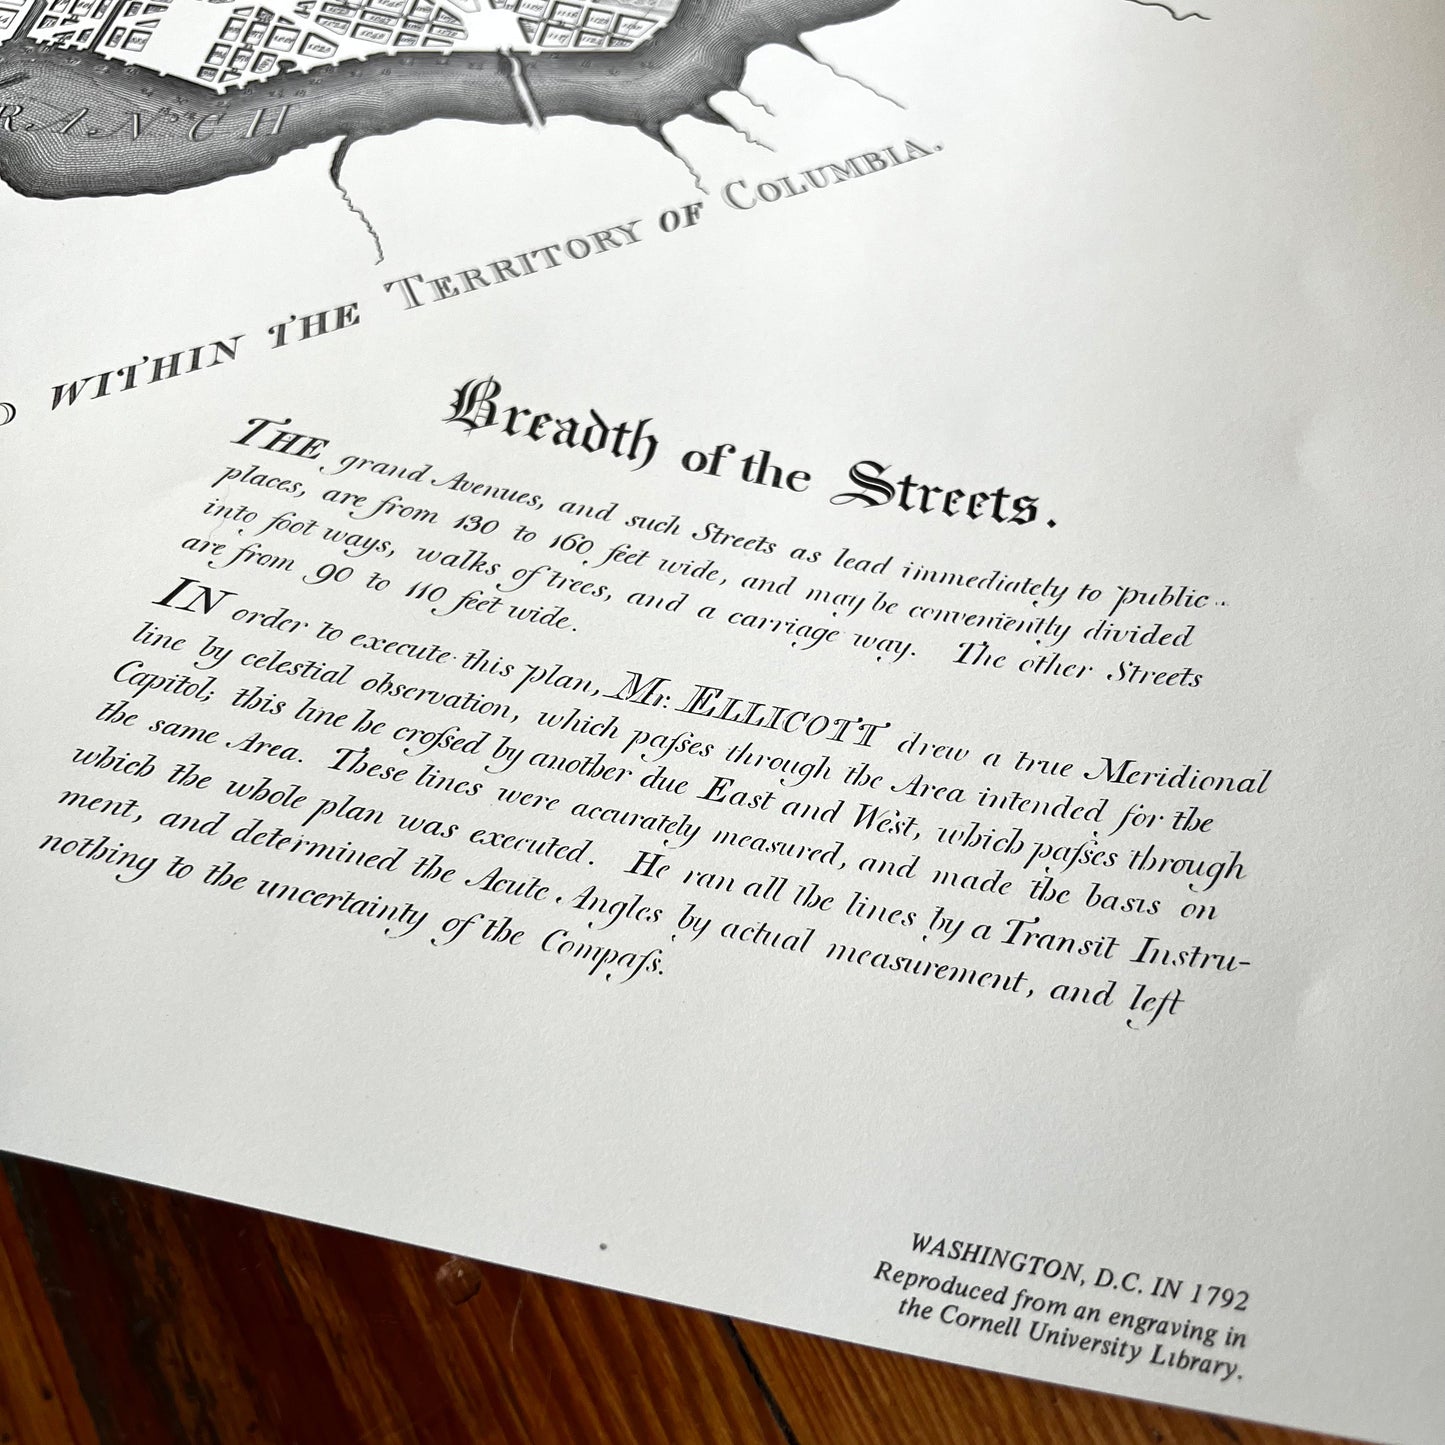 RANCH
WITHIN THE TERRITORY OF COLUMBIA.
Breadth of the Streets.
THE grand Avenues, and such Streets as lead immediately to public
places, are from 130 to 160 feet wide, and may be conveniently divided
into foot ways, walks of trees, and a carriage way. The other Streets
are from 90 to 110 feet wide.
IN order to execute this plan, Mr. ELLICOTT drew a true Meridional
line by celestial observation, which paſses through the Area intended for the
Capitol; this line he croſsed by another due East and West, which paſses through
the same Area. These lines were accurately measured, and made the basis on
which the whole plan was executed. He ran all the lines by a Transit Instru-
ment, and determined the Acute Angles by actual measurement, and left
nothing to the uncertainty of the Compaſs.
WASHINGTON, D.C. IN 1792
Reproduced from an engraving in
the Cornell University Library.